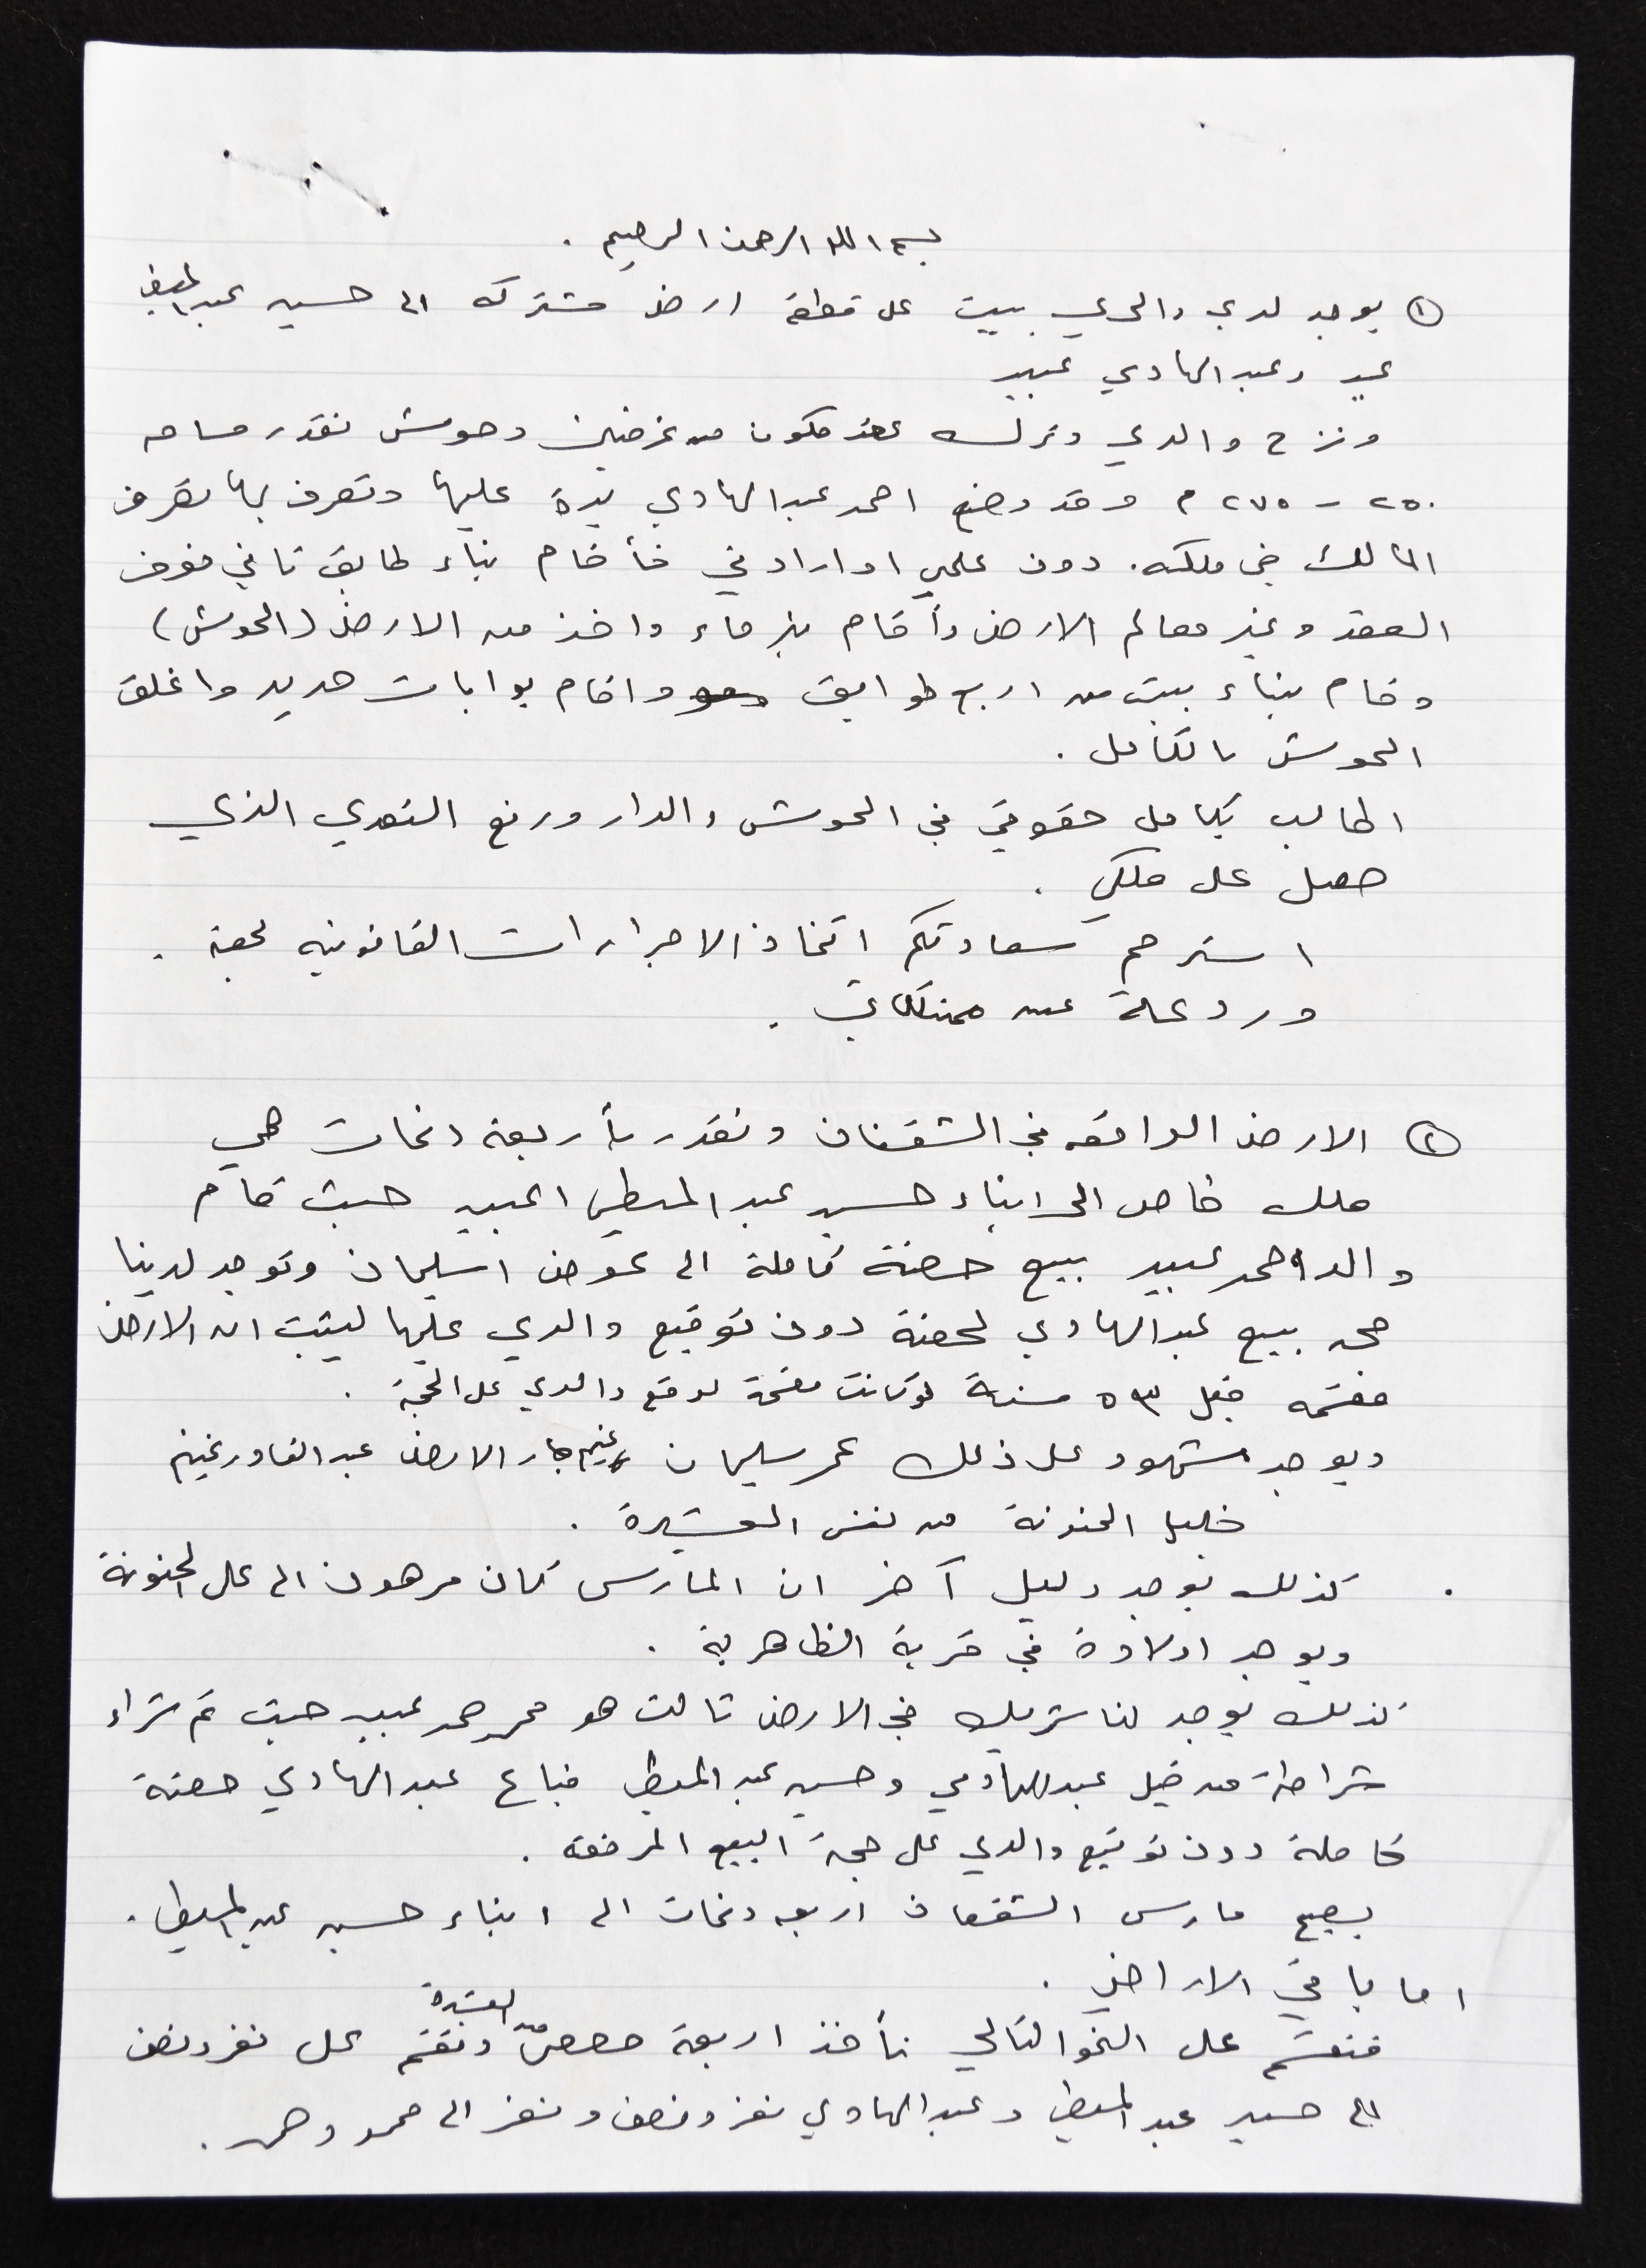 بسم الله الرحمن الرحيم .
① يوجد لدى والدي بيت على قطعة ارض مشتركه الى حسين عبد المعطي
عبيد وعبد الهادي عبيد
ونزح والدي وترك عقد مكون من غرفتين وحوش تقدر مساحه
٢٥٠ - ٢٧٥ م وقد وضع احمد عبد الهادي يدة عليها وتصرف بها تصرف
المالك في ملكه. دون علمي او ارادتي فأقام بناء طابق ثاني فوق
العقد وغير معالم الارض وأقام بئر ماء واخذ من الارض (الحوش)
وقام ببناء بيت من اربع طوابق واقام بوابات حديد واغلق
الحوش بالكامل .
اطالب بكامل حقوقي في الحوش والدار ورفع التعدي الذي
حصل على ملكي .
استرحم سعادتكم اتخاذ الاجراءات القانونيه لحقة .
وردعة عن ممتلكاتي .
② الارض الواقعه في الشقفان وتقدر بأربعة دنمات هي
ملك خاص الى ابناء حسين عبد المعطي اعبيد حيث قام
والد احمد عبيد ببيع حصتة كاملة الى عوض اسليمان وتوجد لدينا
حجه بيع عبد الهادي لحصتة دون توقيع والدي عليها ليثبت ان الارض
مقسمه قبل ٥٣ سنة لو كانت مقسمة لوقع والدي على الحجة .
ويوجد شهود على ذلك عمر سليمان غنيم جار الارض عبد القادر غنيم
خليل الحنونة من نفس العشيرة .
. كذلك يوجد دليل آخر ان المارس كان مرهون الى علي الحنونة
ويوجد اولادة في قرية الظاهرية .
كذلك يوجد لنا شريك في الارض ثالث هو محمد حمد عبيد حيث تم شراء
شراحة من قبل عبد الهادي وحسين عبد المعطي فباع عبد الهادي حصتة
كاملة دون توقيع والدي على حجة البيع المرفقه .
يصبح مارس الشقفان اربعه دنمات الى ابناء حسين عبد المعطي .
اما باقي الاراضي .
فتقسم على النحو التالي نأخذ اربعة حصص من العشيرة وتقسم على نفر ونصف
الى حسين عبد المعطي وعبد الهادي نفر ونصف ونفر الى محمد وحمد .